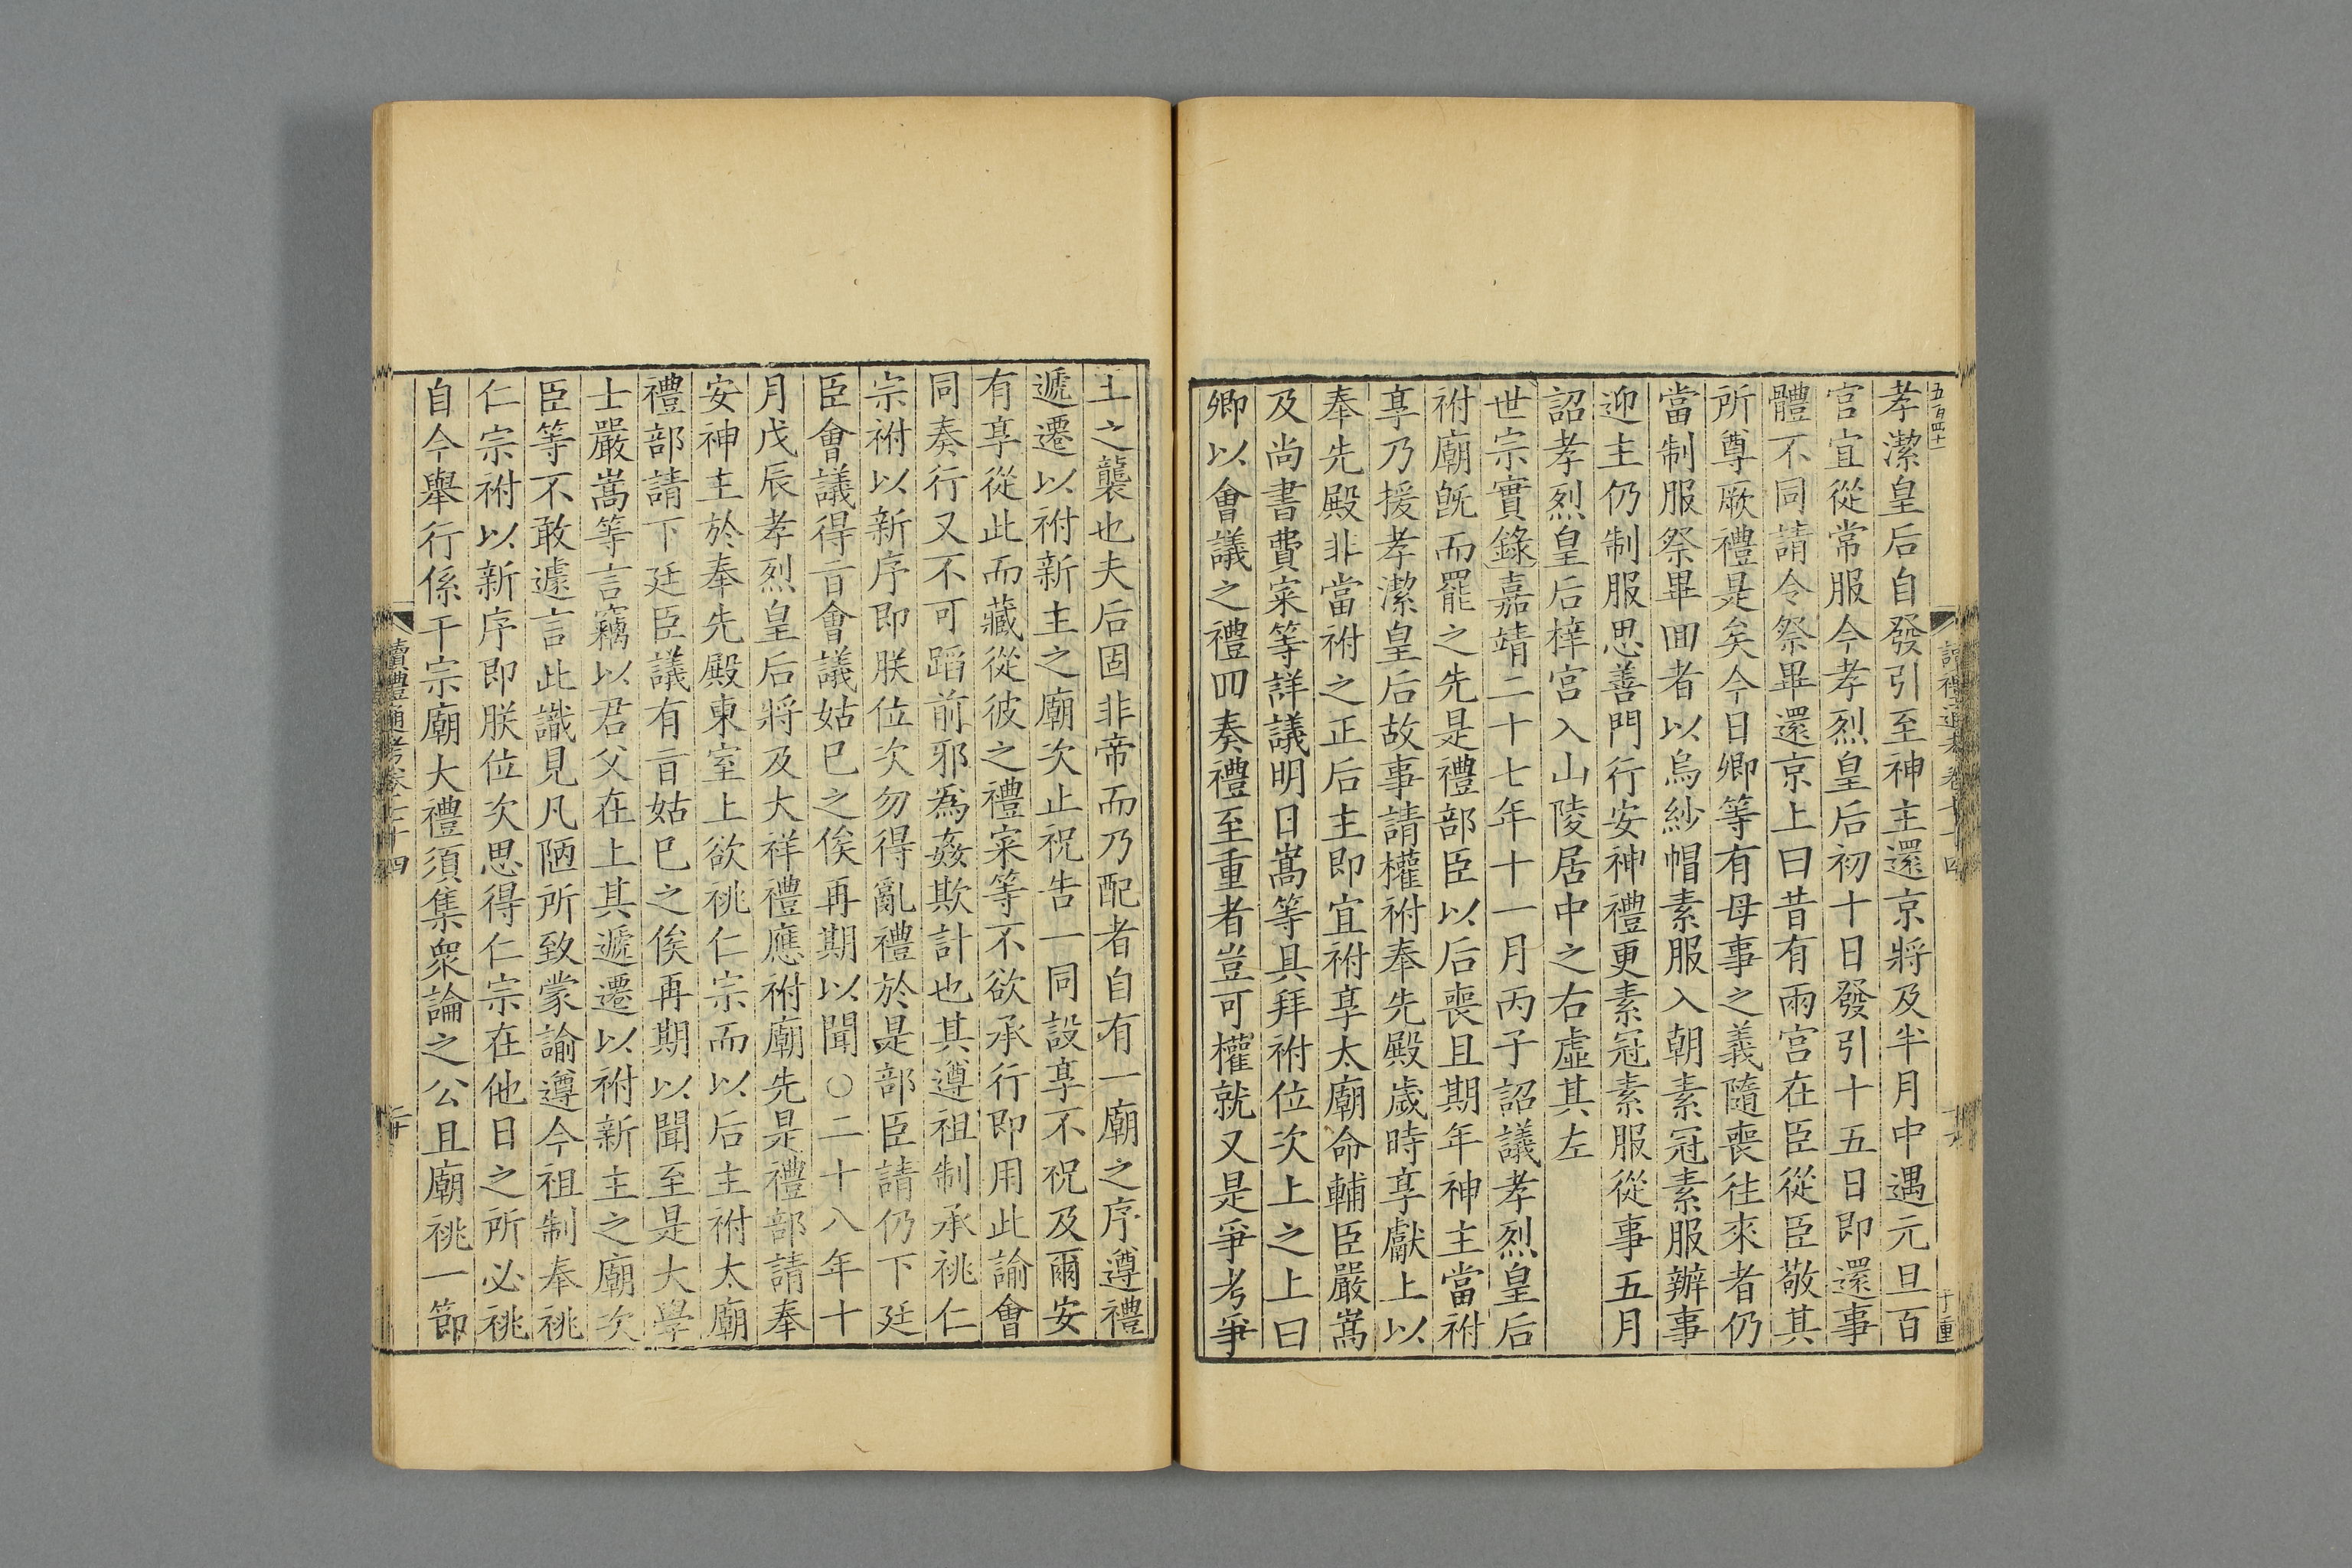 五百四十
孝潔皇后自發引至神主還京將及半月中遇元旦百
官宜從常服今孝烈皇后初十日發引十五日即還事
體不同請令祭畢還京上曰昔有兩宮在臣從臣敬其
所尊厥禮是矣今日卿等有母事之義隨喪往來者仍
當制服祭畢回者以烏紗帽素服入朝素冠素服辦事
迎主仍制服思善門行安神禮更素冠素服從事五月
詔孝烈皇后梓宮入山陵居中之右虛其左
世宗實錄嘉靖二十七年十一月丙子詔議孝烈皇后
祔廟旣而罷之先是禮部臣以后喪且期年神主當祔
享乃援孝潔皇后故事請權祔奉先殿歲時享獻上以
奉先殿非當祔之正后主即宜祔享太廟命輔臣嚴嵩
及尚書費寀等詳議明日嵩等具拜祔位次上之上曰
卿以會議之禮回奏禮至重者豈可權就又是爭考爭
王之襲也夫后固非帝而乃配者自有一廟之序遵禮
遞遷以祔新主之廟次止祝告一同設享不祝及爾安
有享從此而藏從彼之禮寀等不欲承行即用此諭會
同奏行又不可蹈前邪為姦欺計也其遵祖制承祧仁
宗祔以新序即朕位次勿得亂禮於是部臣請仍下廷
臣會議得旨會議姑已之俟再期以聞○二十八年十
月戊辰孝烈皇后將及大祥禮應祔廟先是禮部請奉
安神主於奉先殿東室上欲祧仁宗而以后主祔太廟
禮部請下廷臣議有旨姑已之俟再期以聞至是大學
士嚴嵩等言竊以君父在上其遞遷以祔新主之廟次
臣等不敢遽言此識見凡陋所致蒙諭遵今祖制奉祧
仁宗祔以新序即朕位次思得仁宗在他日之所必祧
自今舉行係干宗廟大禮須集衆論之公且廟祧一節
讀禮通考卷七十四